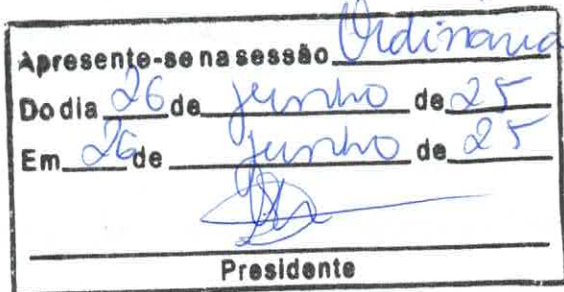 Apresente-se na sessão Ordinaria
Do dia 26 de junho de 25
Em 26 de junho de 25
Presidente